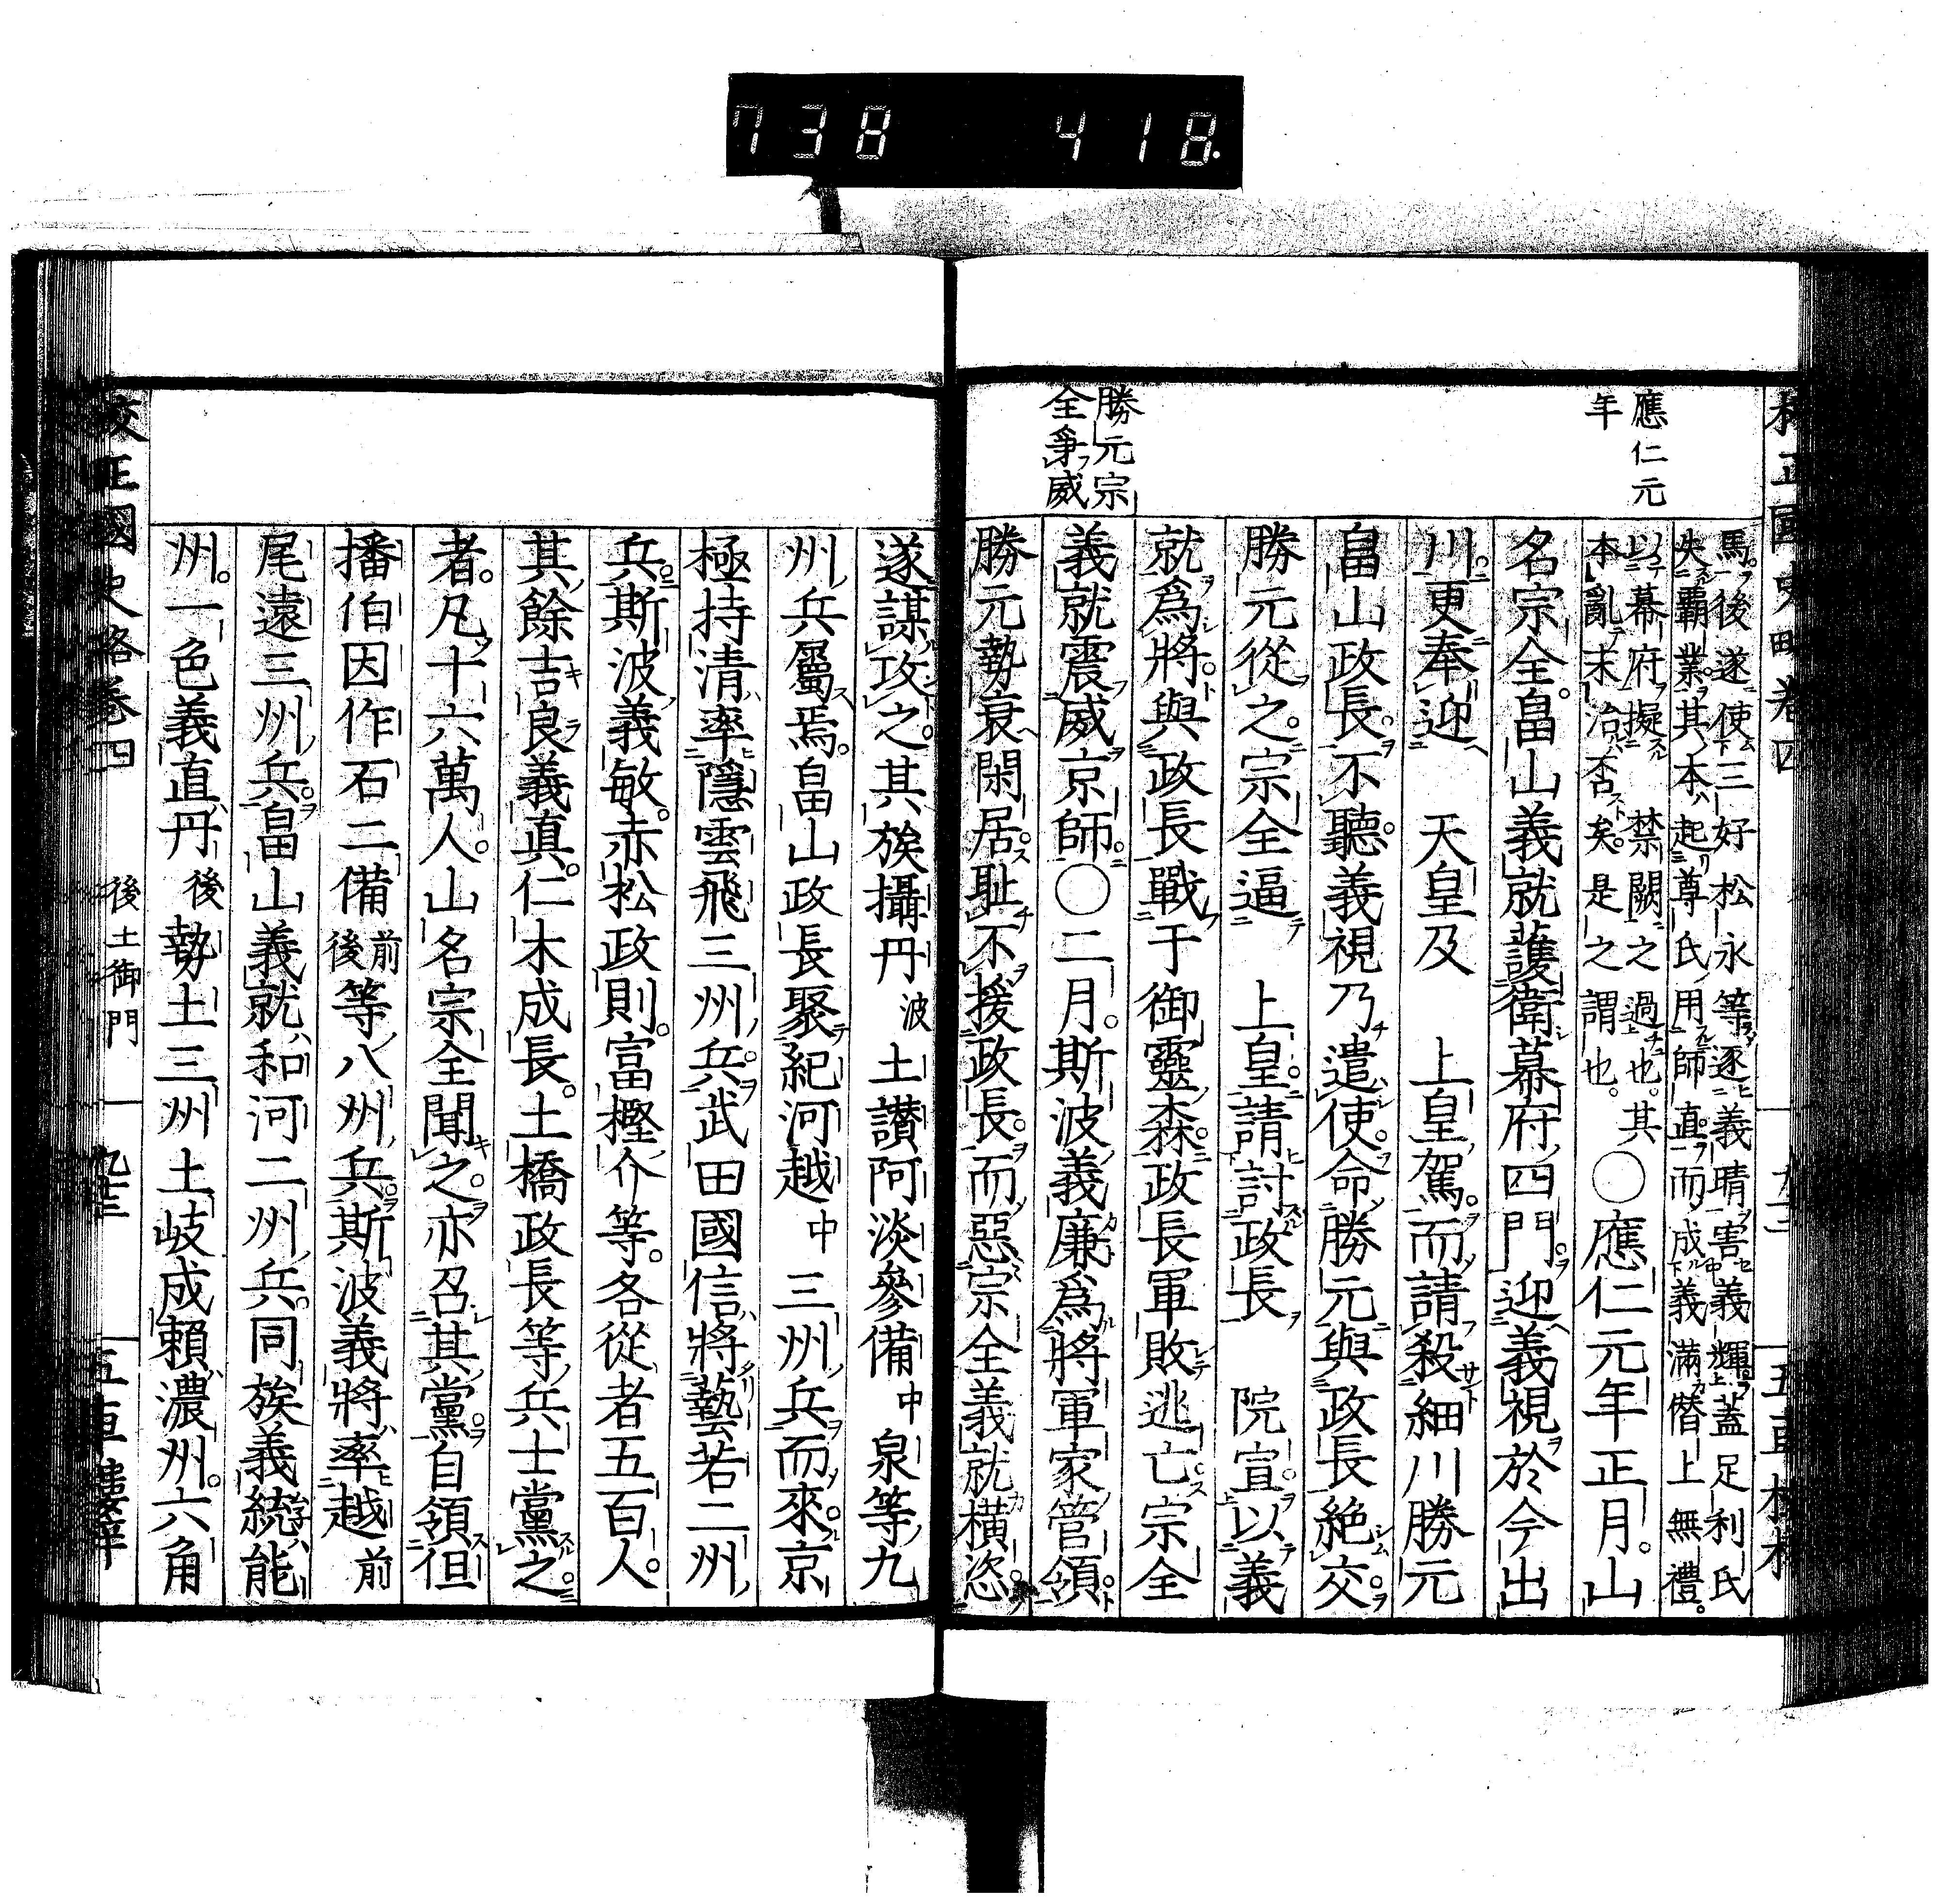 738 418.
校正國史略卷四
應仁元
年
勝元宗
全爭威
馬後遂使三好松永等逐義晴害義輝蓋足利氏
失覇業其本起尊氏用師直而成義滿僭上無禮
以幕府擬 禁闕之過也其
本亂末治否矣是之謂也。
○應仁元年正月。山
名宗全。畠山義就護衛幕府四門。迎義視於今出
川。更奉迎 天皇及 上皇駕。而請殺細川勝元
畠山政長。不聽。義視乃遣使。命勝元與政長絶交。
勝元從之。宗全逼 上皇。請討政長 院宣。以義
就爲將。與政長戰于御靈森。政長軍敗逃亡。宗全
義就震威京師。○二月。斯波義廉爲將軍家管領。
勝元勢衰閑居。耻不援政長。而惡宗全義就橫恣。
遂謀攻之。其族攝丹波土讃阿淡參備中泉等九
州兵屬焉。畠山政長聚紀河越中三州兵而來。京
極持清率隱雲飛三州兵。武田國信將藝若二州
兵。斯波義敏。赤松政則。富樫介等。各從者五百人。
其餘吉良義真。仁木成長。土橋政長等兵士黨之
者。凡十六萬人。山名宗全聞之。亦召其黨。自領但
播伯因作石二備前後等八州兵。斯波義將率越前
尾遠三州兵。畠山義就和河二州兵。同族義統能
州。一色義直丹後勢土三州土岐成賴濃州。六角
校正國史略卷四
後土御門
五車樓梓